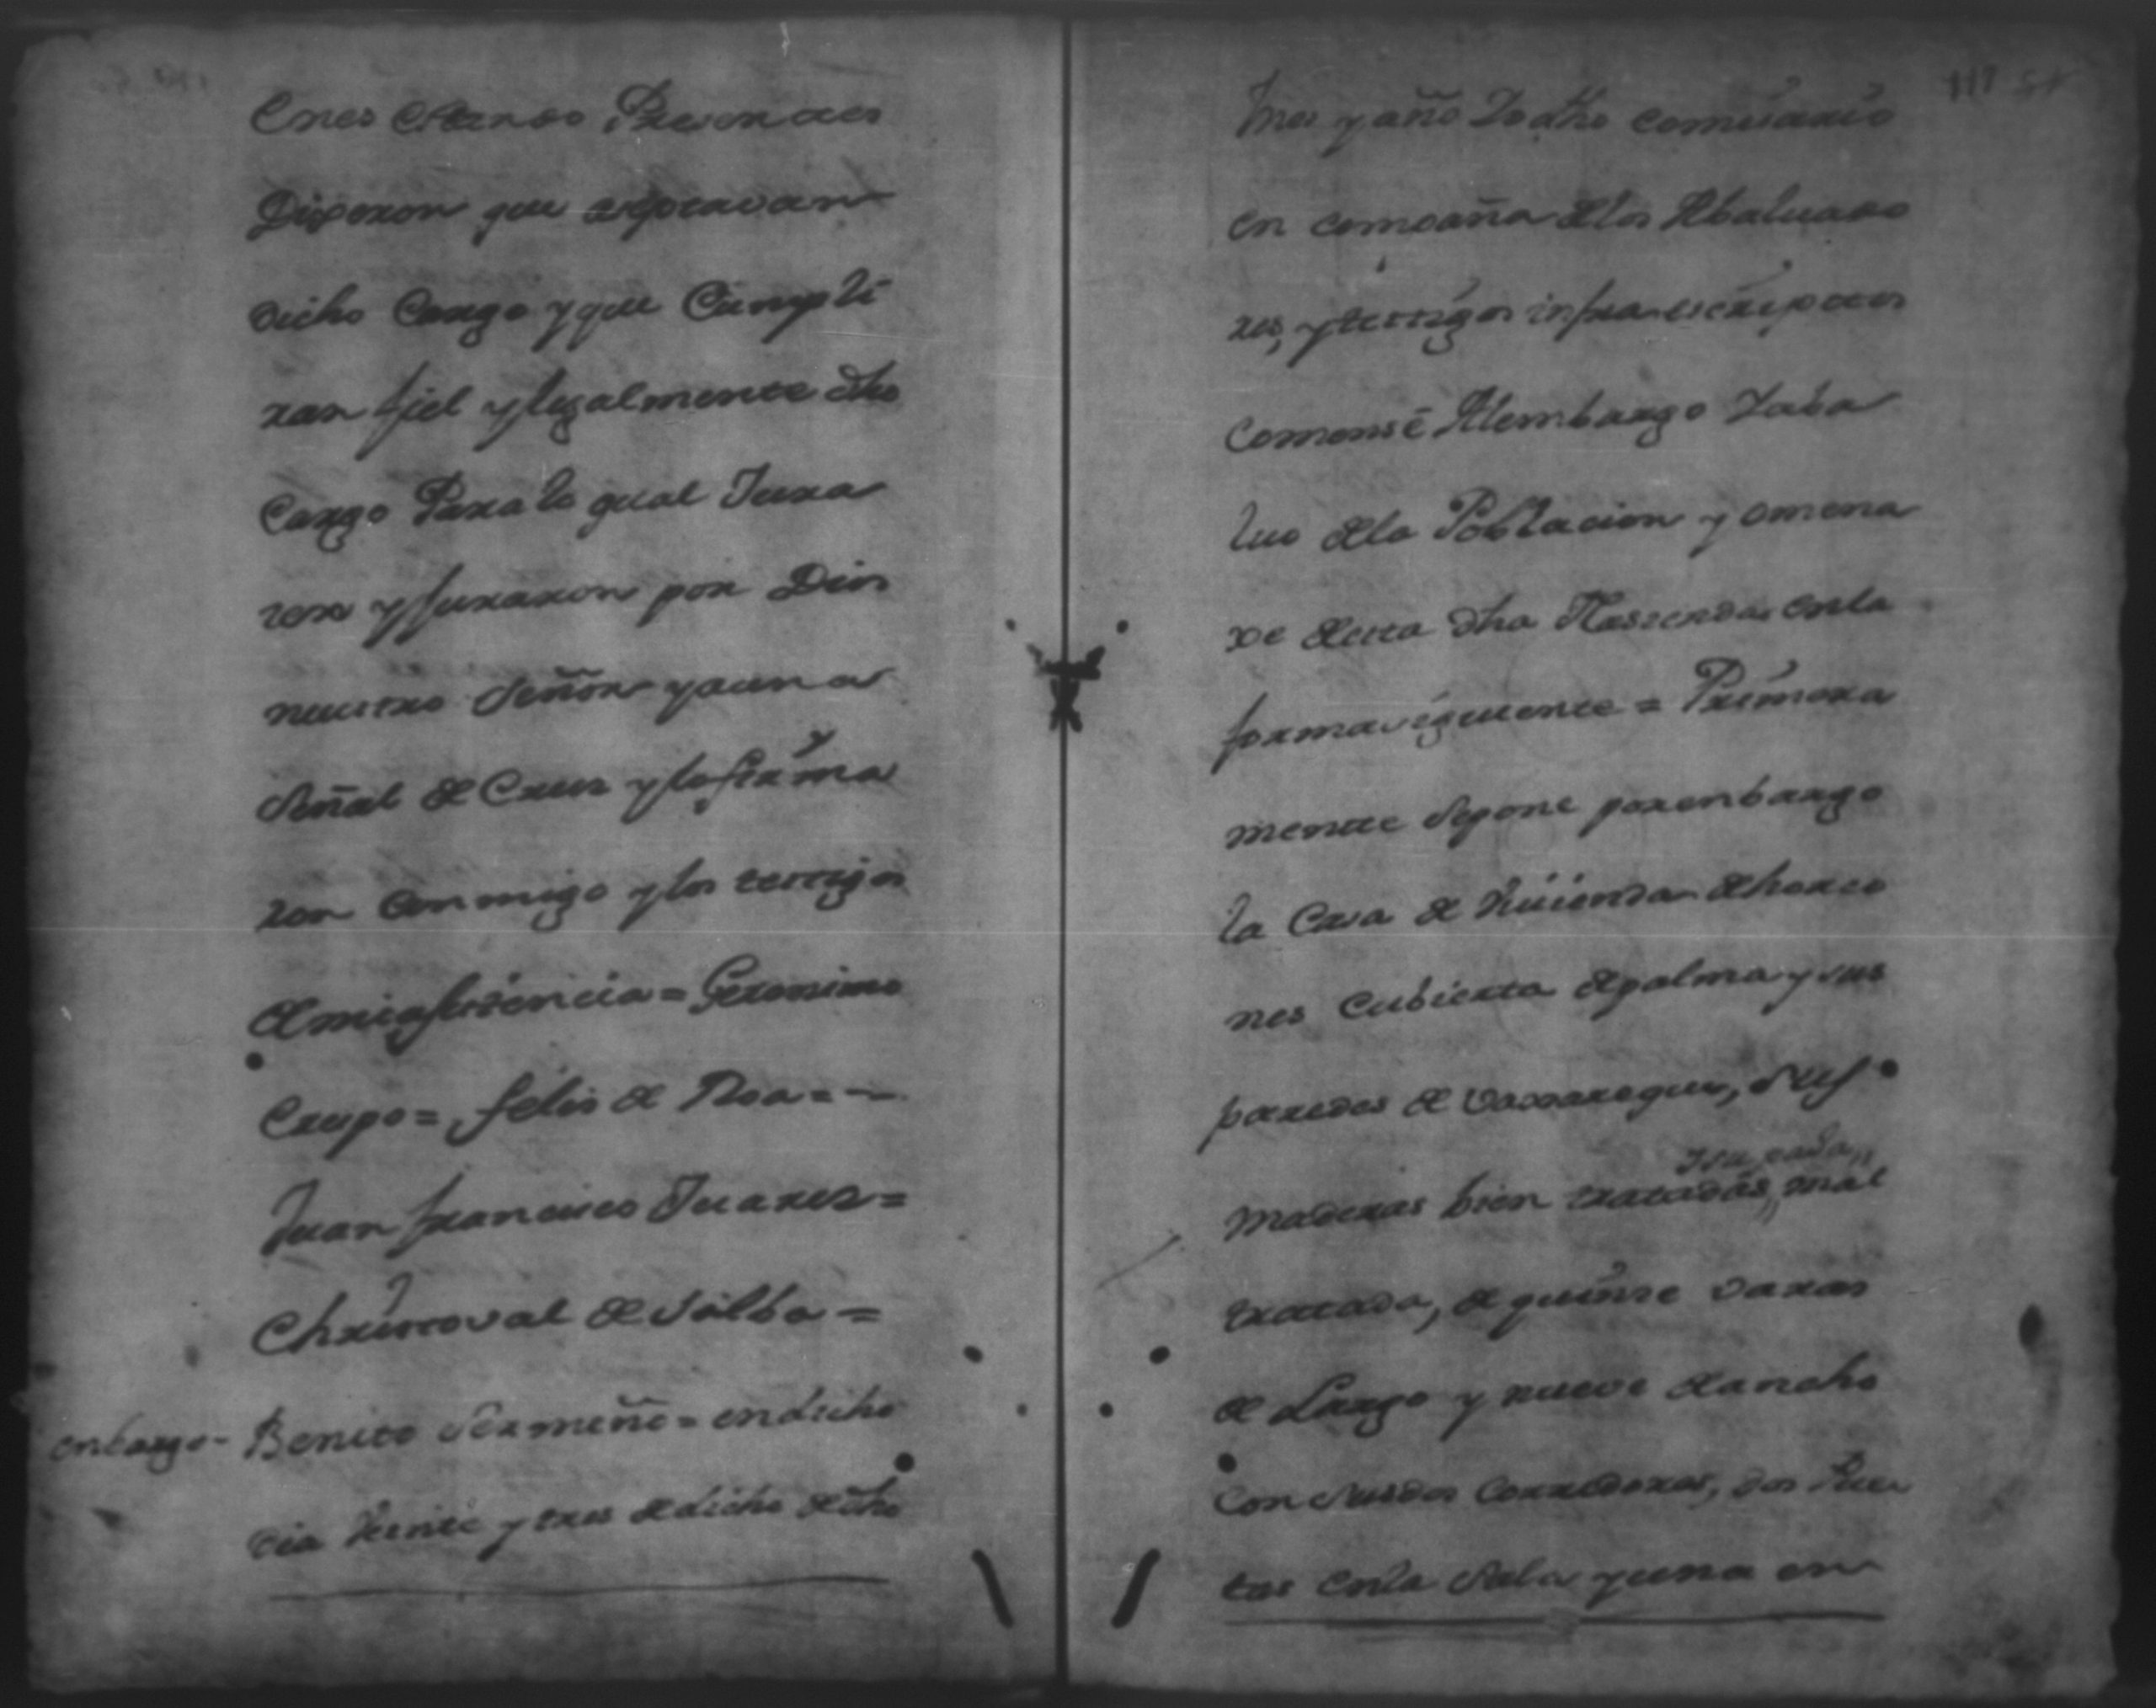 enes estando Presentes
Dixeron que aseptavan
dicho Cargo y que Cumpli
ran fiel y legalmente dho
Cargo Para lo qual Jura
ron y juraron por Dios
nuestro Señor y auna
Señal de Cruz y lo firma
ron conmigo y los testigos
de mi asistencia = Geronimo
Crespo = felis de Roa = -
Juan francisco Juares =
Christoval de Silba =
enbargo - Benito Sermeño = en dicho
dia Veinte y tres de dicho dicho
117
mes y año Yo dho comisario
en compaña de los Abaluado
res, y testigos infraescriptos
Comensé Al embargo Y aba
luo de la Poblacion y omena
xe de esta dha Hasienda en la
forma siguiente = Primera
mente se pone por enbargo
la Casa de Vivienda de horco
nes Cubierta de palma y sus
paredes de vaxareque, sus
Y su
maderas bien tratadas, mal
tratada, de quinse varas
de Largo y nueve de ancho
Con sus dos Corredores, dos Puer
tas en la Sala y una en